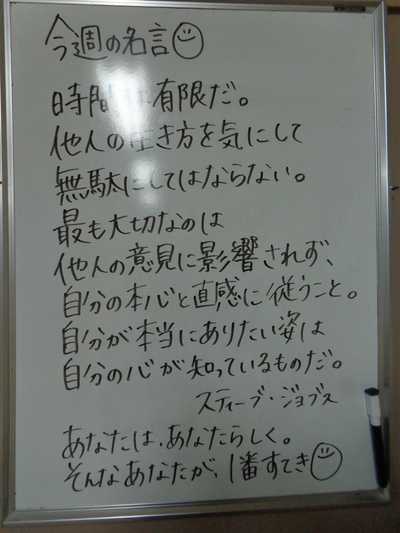 今週の名言
時間は有限だ。
他人の生き方を気にして
無駄にしてはならない。
最も大切なのは
他人の意見に影響されず、
自分の本心と直感に従うこと。
自分が本当にありたい姿は
自分の心が知っているものだ。
スティーブ・ジョブス
あなたは、あなたらしく。
そんなあなたが、1番すてき